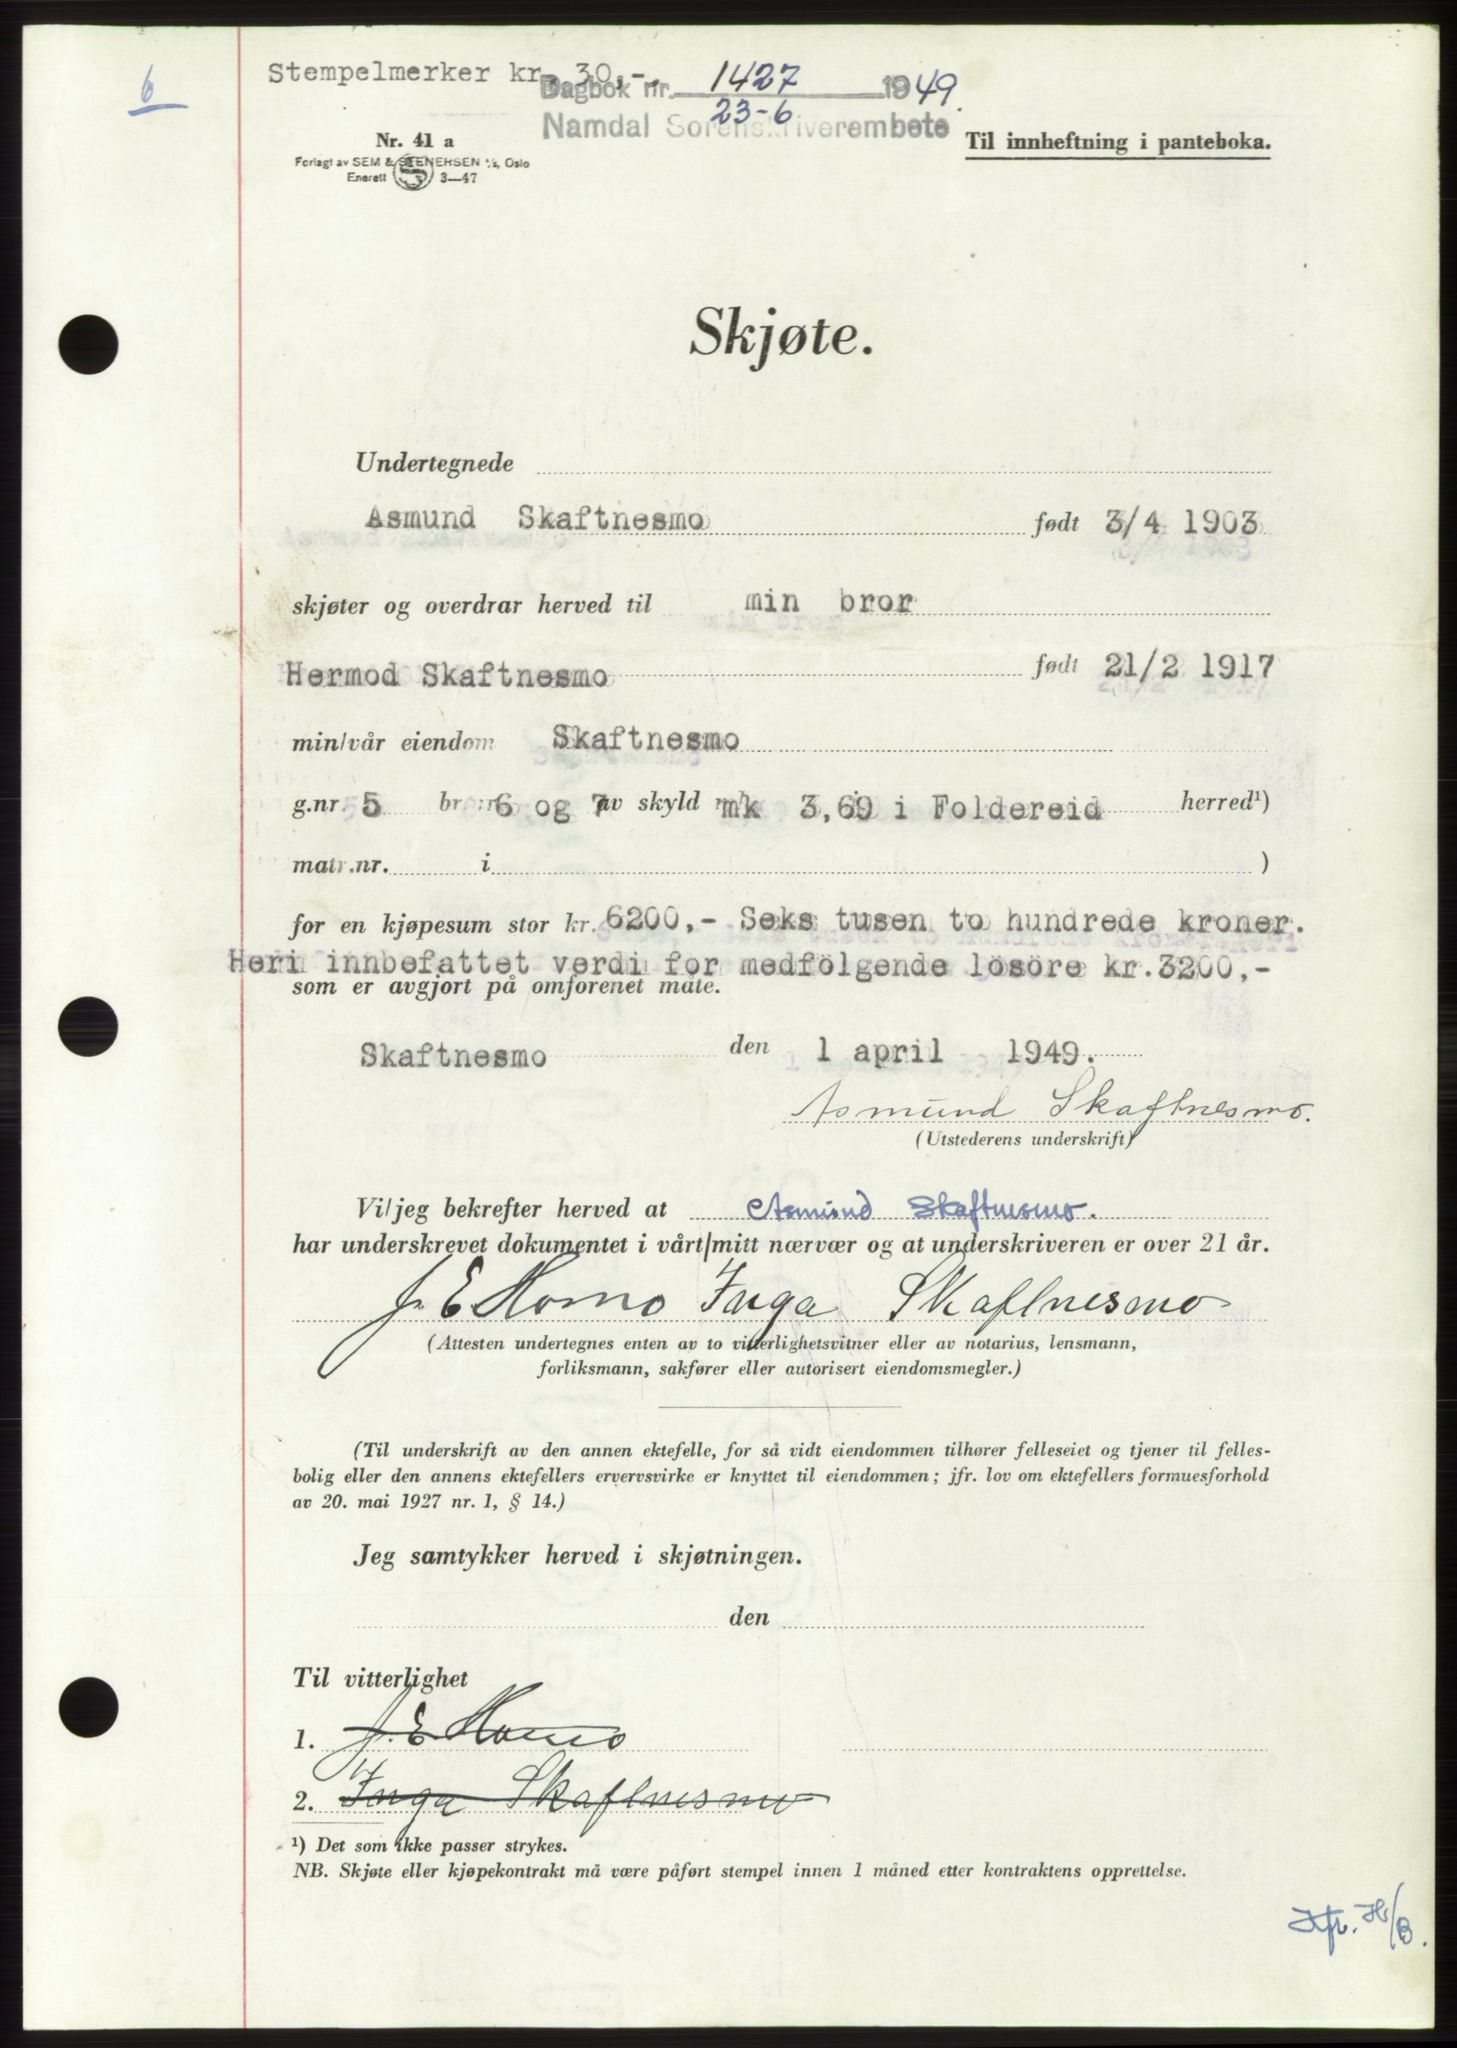 6
Stempelmerker kr. 30,-.
Dagbok nr. 1427 1949.
23-6
Namdal Sorenskriverembete
Nr. 41 a
Forlagt av SEM & STENERSEN A/S, Oslo
Enerett S 3—47
Til innheftning i panteboka.
Skjøte.
Undertegnede
Asmund Skaftnesmo født 3/4 1903
skjøter og overdrar herved til min bror
Hermod Skaftnesmo født 21/2 1917
min/vår eiendom Skaftnesmo
g.nr. 5 br.nr. 6 og 7 av skyld mk 3,69 i Foldereid herred¹)
matr.nr. i )
for en kjøpesum stor kr. 6200,- Seks tusen to hundrede kroner.
Heri innbefattet verdi for medfölgende lösöre kr.3200,-
som er avgjort på omforenet måte.
Skaftnesmo den 1 april 1949.
Asmund Skaftnesmo.
(Utstederens underskrift)
Vi/jeg bekrefter herved at Asmund Skaftnesmo.
har underskrevet dokumentet i vårt/mitt nærvær og at underskriveren er over 21 år.
J. E Homo Inga Skaftnesmo
(Attesten undertegnes enten av to vitterlighetsvitner eller av notarius, lensmann,
forliksmann, sakfører eller autorisert eiendomsmegler.)
(Til underskrift av den annen ektefelle, for så vidt eiendommen tilhører felleseiet og tjener til felles-
bolig eller den annens ektefellers ervervsvirke er knyttet til eiendommen; jfr. lov om ektefellers formuesforhold
av 20. mai 1927 nr. 1, § 14.)
Jeg samtykker herved i skjøtningen.
den
Til vitterlighet
1. J. E. Homo
2. Inga Skaftnesmo
¹) Det som ikke passer strykes.
NB. Skjøte eller kjøpekontrakt må være påført stempel innen 1 måned etter kontraktens opprettelse.